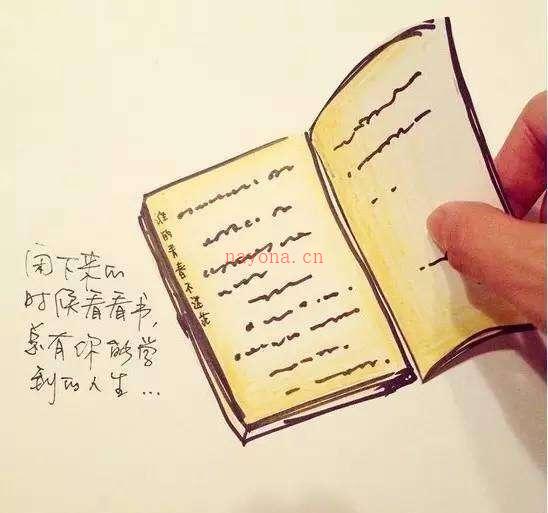 闲下来的
时候看看书,
总有你能学
到的人生...
谁的青春不迷茫
nayona.cn